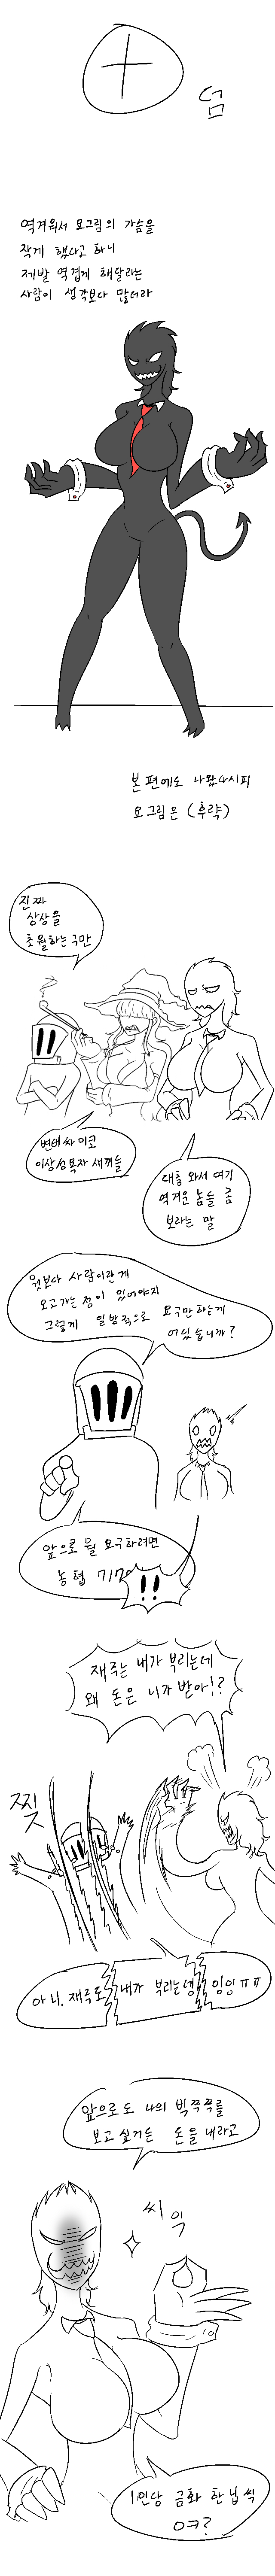 덤
역겨워서 요그림의 가슴을
작게 했다고 하니
제발 역겹게 해달라는
사람이 생각보다 많더라
본편에도 나왔다시피
요그림은 (후략)
진짜
상상을
초월하는구만
변태싸이코
이상성욕자 새끼들
대충 와서 여기
역겨운 놈들 좀
보라는 말
뭣보다 사람이란게
오고가는 정이 있어야지
그렇게 일방적으로 요구만하는게
어딨습니까?
앞으로 뭘 요구하려면
농협 717
!!
재주는 내가 부리는데
왜 돈은 니가 받아!?
찢
아니, 재주도 내가 부리는뎅 잉잉ㅠㅠ
앞으로도 나의 빅쭉쭉를
보고싶거든 돈을 내라고
씨익
1인당 금화 한닢씩
ㅇㅋ?